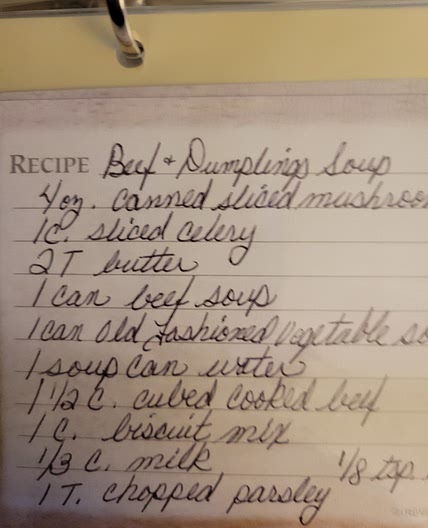 RECIPE Beef & Dumplings Soup
4 oz. canned sliced mushroo
1 C. sliced celery
2 T butter
1 can beef soup
1 can Old Fashioned Vegetable so
1 soup can water
1 1/2 C. cubed cooked beef
1 C. biscuit mix
1/3 C. milk 1/8 tsp.
1 T. chopped parsley